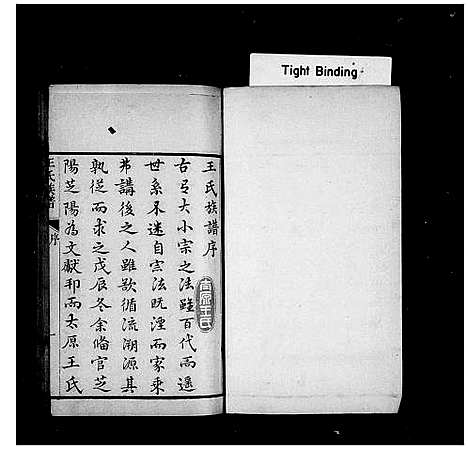 Tight Binding
王氏族譜序
古者大小宗之法雖百代而遥
世系不迷自宗法既湮而家乘
弗講後之人雖欲循流溯源其
孰從而求之戊辰冬余偹官芝
陽芝陽為文獻邦而太原王氏
王氏族譜
序
一